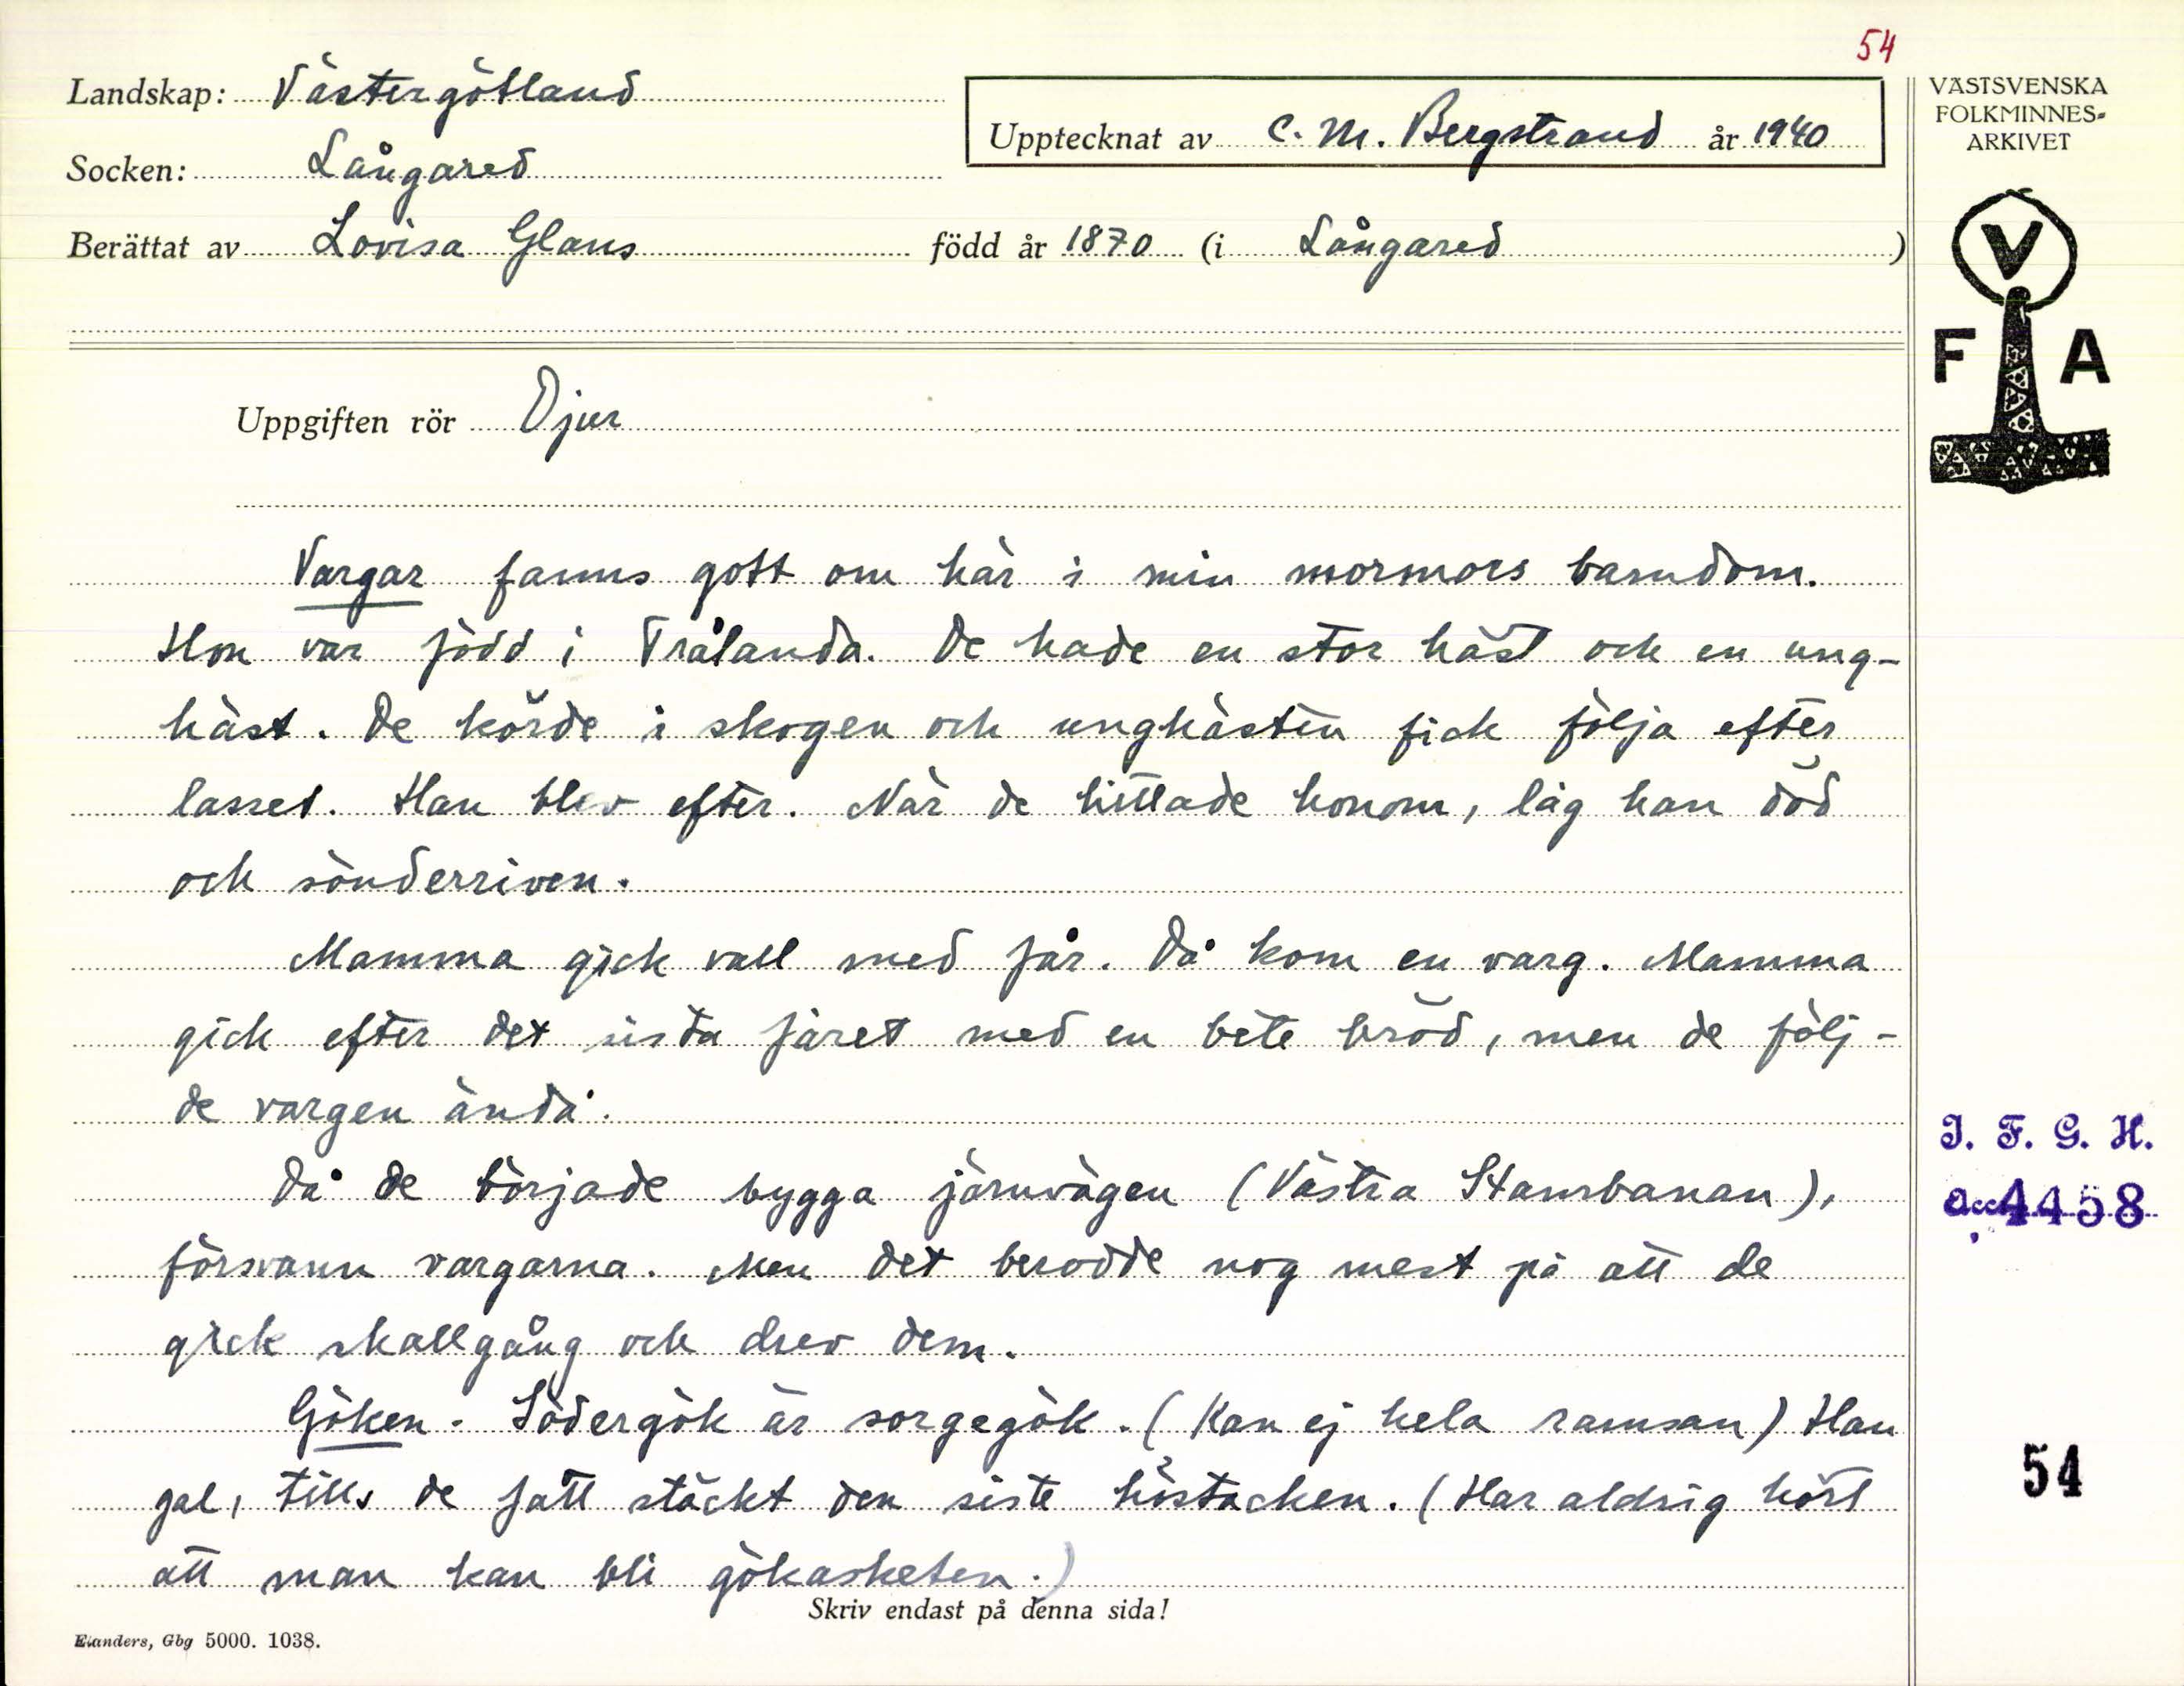 54
Landskap: Västergötland
Socken: Långared
Berättat av Lovisa Glans född år 1870 (i Långared)
Upptecknat av C. M. Bergstrand år 1940
VÄSTSVENSKA
FOLKMINNES-
ARKIVET
V
F A
Uppgiften rör Djur
Vargar fanns gott om här i min mormors barndom.
Hon var född i Trålanda. De hade en stor häst och en ung-
häst. De körde i skogen och unghästen fick följa efter
lasset. Han blev efter. När de hittade honom, låg han död
och sönderriven.
Mamma gick vall med får. Då kom en varg. Mamma
gick efter det sista fåret med en bete bröd, men de följ-
de vargen ändå.
Då de började bygga järnvägen (Västra Stambanan),
försvann vargarna. Men det berodde nog mest på att de
gick skallgång och drev dem.
Göken. Södergök är sorgegök. (Kan ej hela ramsan) Han
gal, tills de fått stäckt den siste höstacken. (Har aldrig hört
att man kan bli gökasketen.)
Skriv endast på denna sida!
Elanders, Gbg 5000. 1038.
I. F. G. H.
Acc 4458
54